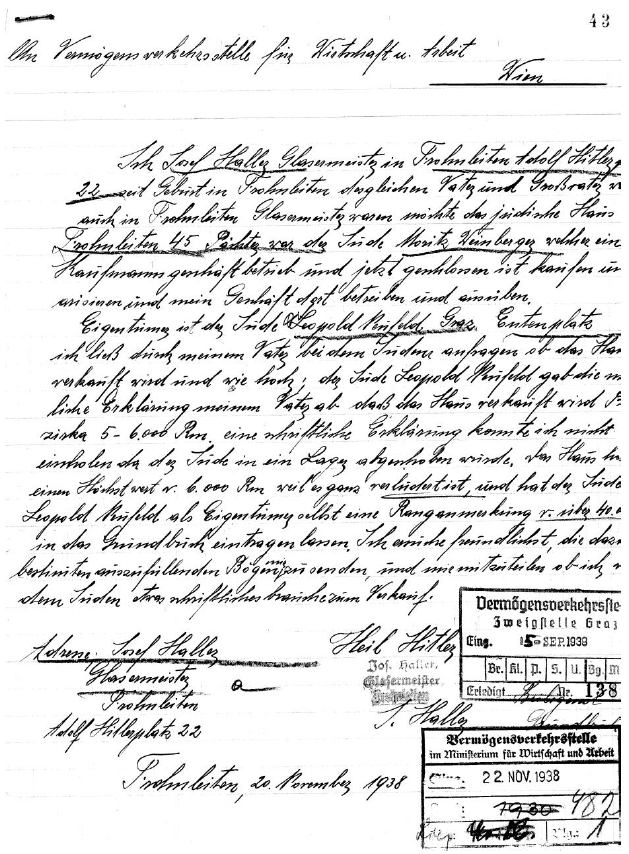 43
An Vermögensverkehrsstelle für Wirtschaft u. Arbeit
Wien
Ich Josef Haller Glasermeister in Frohnleiten Adolf Hitler
22 seit Geburt in Frohnleiten desgleichen Vater und Großvater
auch in Frohnleiten Glasermeister waren möchte das jüdische Haus
Frohnleiten 45 Pächter war der Jude Moritz Weinberger welcher ein
Kaufmannsgeschäft betrieb und jetzt geschlossen ist kaufen
arisieren und mein Geschäft dort betreiben und ausüben.
Eigentümer ist der Jude Leopold Neufeld Graz Entenplatz
ich ließ durch meinem Vater bei dem Juden anfragen ob das
verkauft wird und wie hoch; der Jude Leopold Neufeld gab die
liche Erklärung meinem Vater ab daß das Haus verkauft wird
zirka 5-6.000 Rm. eine schriftliche Erklärung konnte ich nicht
einholen da der Jude in ein Lager abgehoben wurde. Das Haus
einen Höchstwert v. 6.000 Rm weil es ganz verludert ist, und hat der Jude
Leopold Neufeld als Eigentümer selbst eine Ranganmerkung v. über
in das Grundbuch eintragen lassen. Ich ersuche freundlichst, die
bestimten auszufüllenden Bögen mir zusenden, und mir mitzuteilen ob ich
dem Juden etwas schriftliches brauche zum Verkauf.
Heil Hitler
Adresse: Josef Haller
Glasermeister
Frohnleiten
Adolf Hitlerplatz 22
a
Jos. Haller,
Glasermeister
Frohnleiten
J. Haller
Vermögensverkehrsste
Zweigstelle Graz
Eing. 5- SEP. 1939
Br. Kl. P. S. U. Bg. M
Erledigt Nr. 138
Vermögensverkehrsstelle
im Ministerium für Wirtschaft und Arbeit
22. NOV. 1938
7930 482
1
Frohnleiten, 20. November 1938